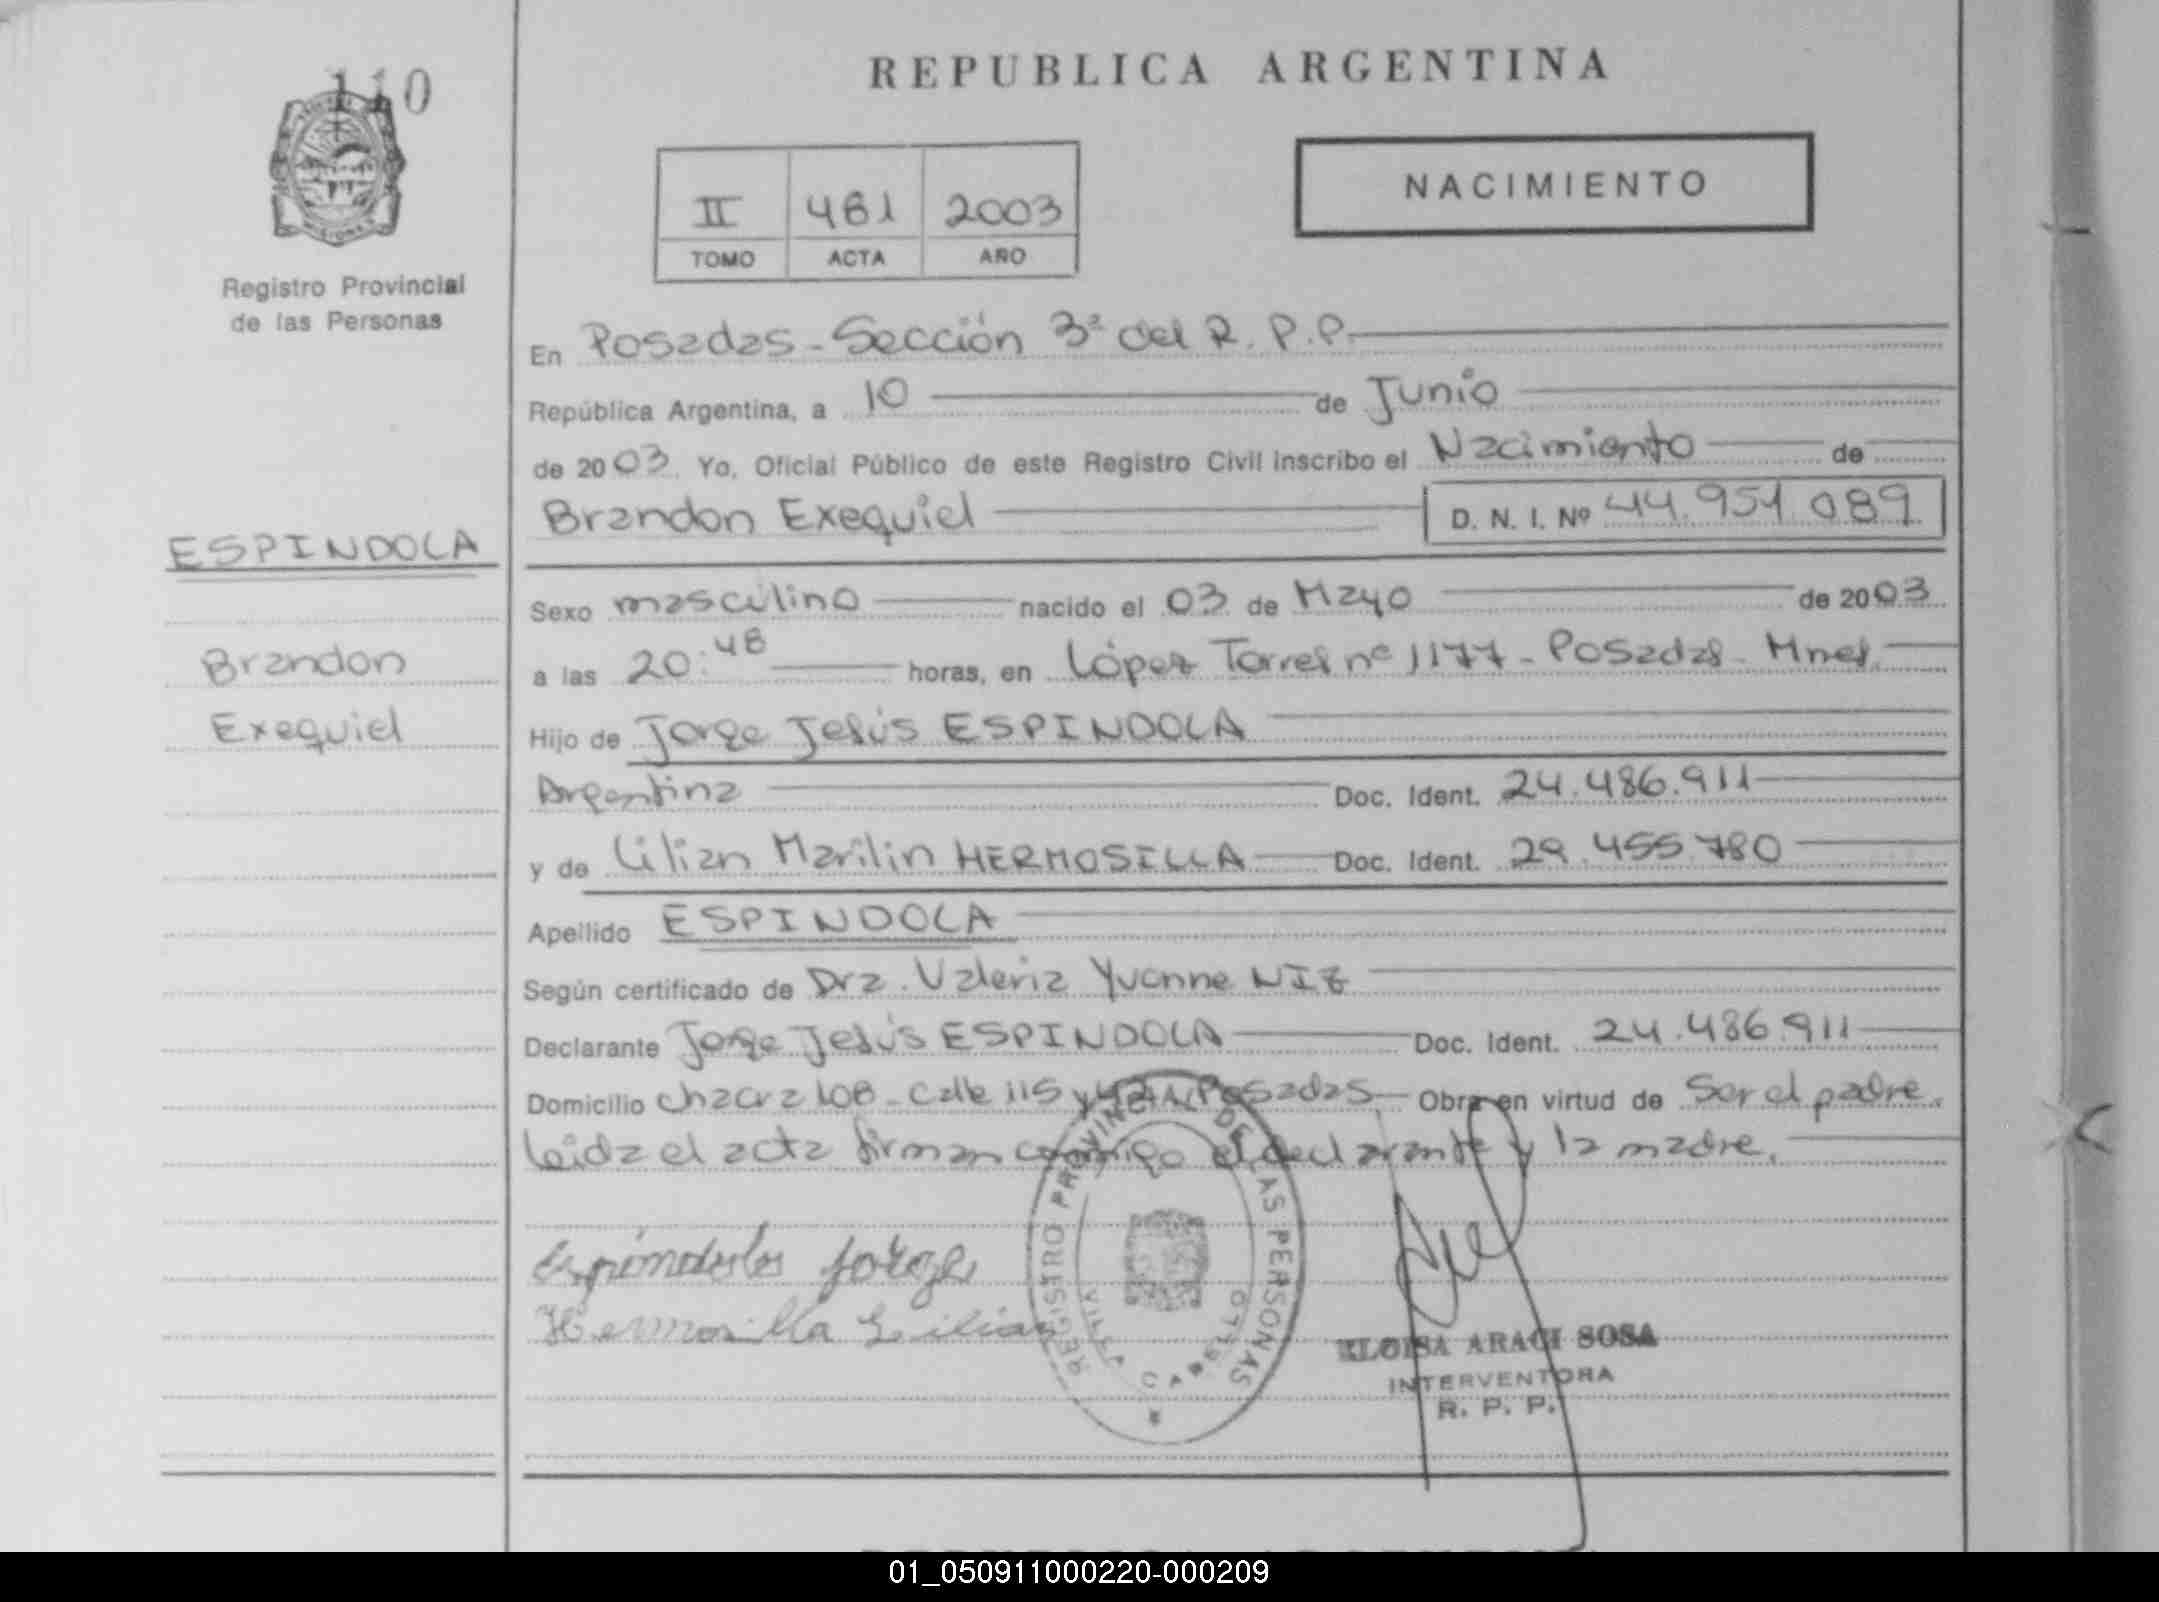 110
REPUBLICA ARGENTINA
NACIMIENTO
II 461 2003
TOMO ACTA AÑO
Registro Provincial
de las Personas
En Posadas - Sección 3ª del R. P. P.
República Argentina, a 10 de Junio
de 2003. Yo, Oficial Público de este Registro Civil inscribo el Nacimiento de
Brandon Exequiel D. N. I. Nº 44.951.089
ESPINDOLA
Brandon
Exequiel
Sexo masculino nacido el 03 de Mayo de 2003
a las 20:48 horas, en López Torres nº 1177 - Posadas - Mnes.
Hijo de Jorge Jesús ESPINDOLA
Argentina Doc. Ident. 24.486.911
y de Lilian Marilin HERMOSILLA Doc. Ident. 29.455.780
Apellido ESPINDOLA
Según certificado de Dra. Valeria Yvonne NIZ
Declarante Jorge Jesús ESPINDOLA Doc. Ident. 24.486.911
Domicilio chacra 108 - calle 115 y Posadas. Obra en virtud de Ser el padre.
Leida el acta firman conmigo el declarante y la madre.
Espindola Jorge
Hermosilla Lilian
REGISTRO PROVINCIAL DE LAS PERSONAS
VILLA CABELLO
ELOISA ARACI SOSA
INTERVENTORA
R. P. P.
01_050911000220-000209